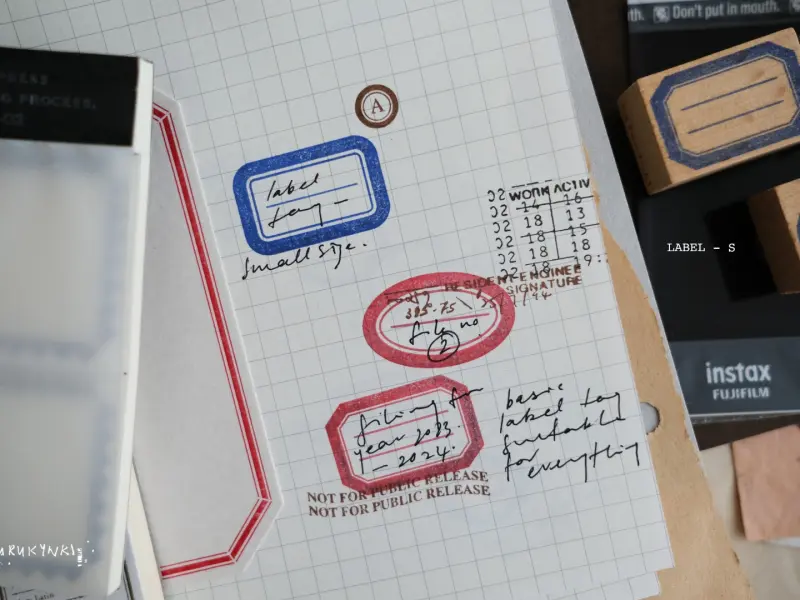 th. Don't put in mouth.
G PROCESS,
A
label
tag -
small size.
WORK ACTIV
02 14 16
02 18 13
02 18 15
02 18 18
02 18 19:
RESIDENT ENGINEE
SIGNATURE
file no
2
filing for
year 2023
- 2024.
basic
label tag
suitable
for
everything
NOT FOR PUBLIC RELEASE
NOT FOR PUBLIC RELEASE
LABEL - S
instax
FUJIFILM
URUKYNKI